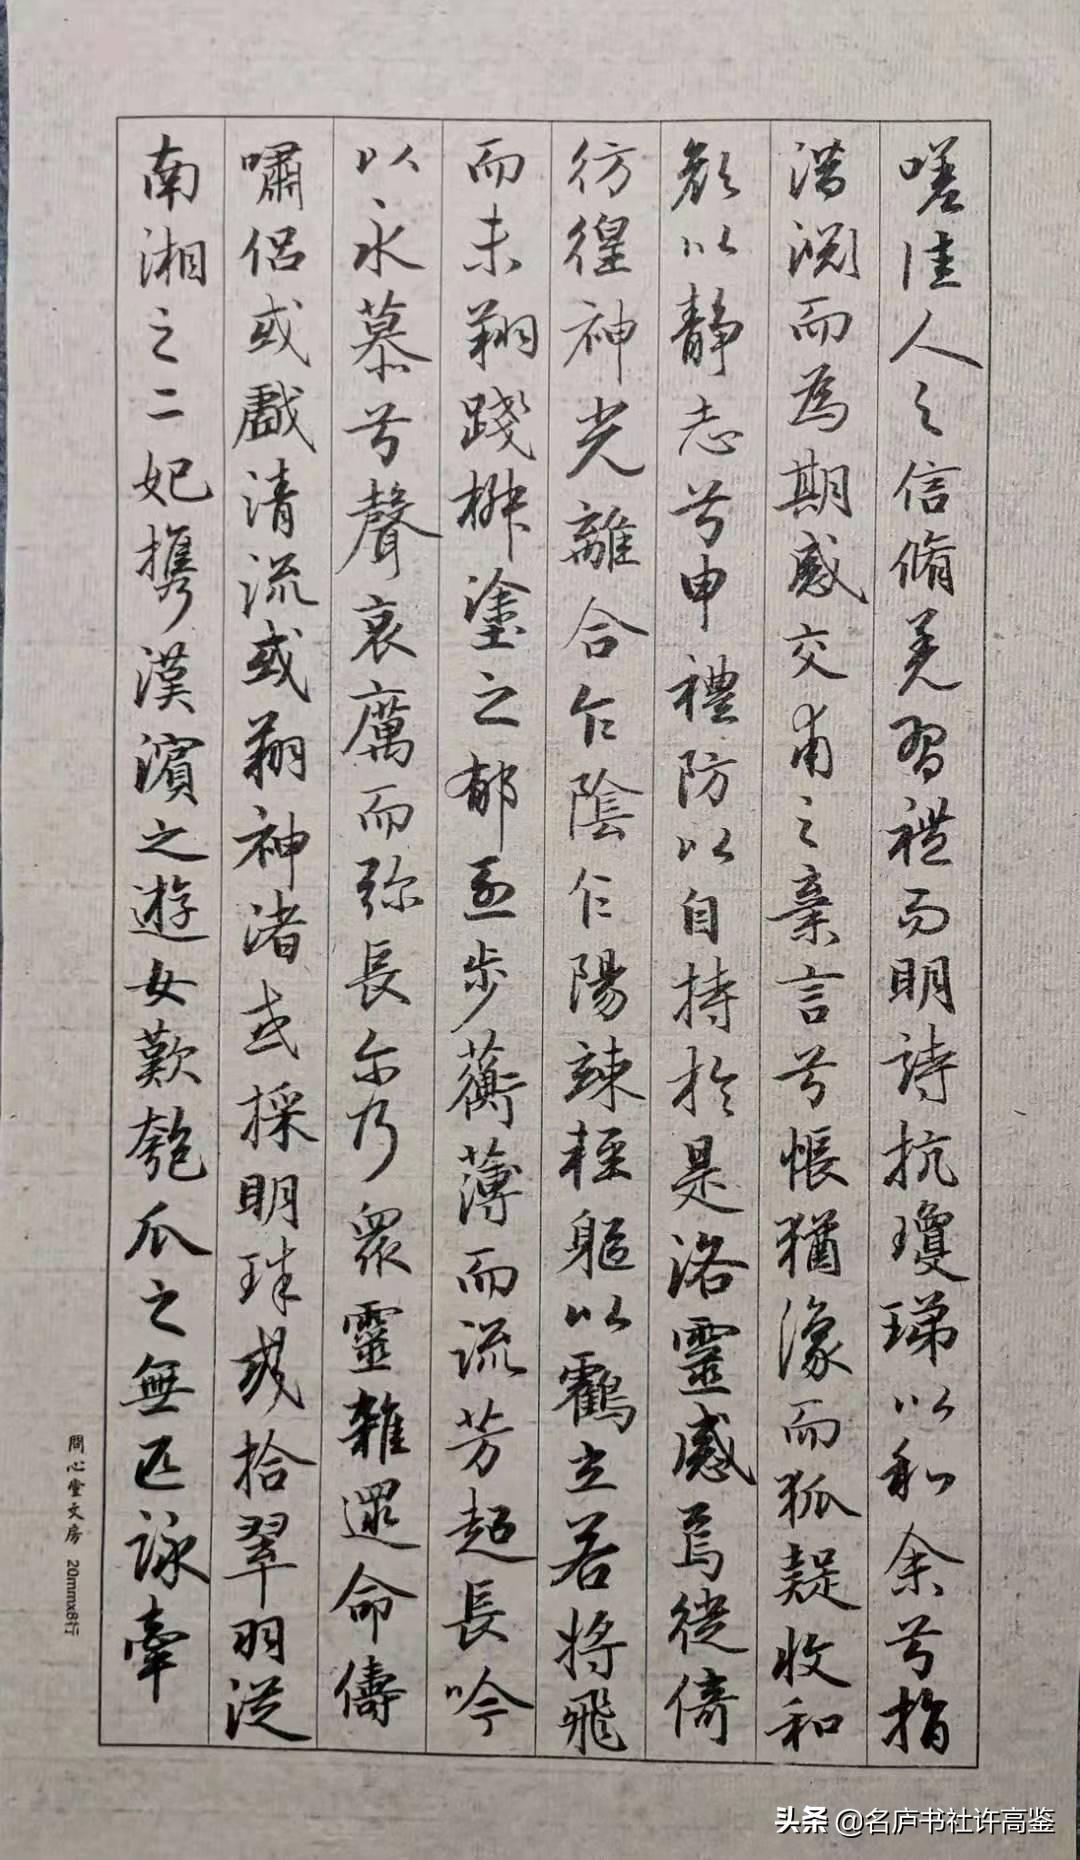 嗟佳人之信脩羌習禮而明詩抗瓊珶以和余兮指
潛淵而為期感交甫之棄言兮悵猶豫而狐疑收和
顏以靜志兮申禮防以自持於是洛靈感焉徙倚
彷徨神光離合乍陰乍陽竦輕軀以鶴立若將飛
而未翔踐椒塗之郁烈步蘅薄而流芳超長吟
以永慕兮聲哀厲而弥長尓乃眾靈雜遝命儔
嘯侶或戲清流或翔神渚或採明珠或拾翠羽從
南湘之二妃攜漢濱之遊女歎匏瓜之無匹詠牽
問心堂文房 20mmx8行
头条 @名庐书社许高鉴